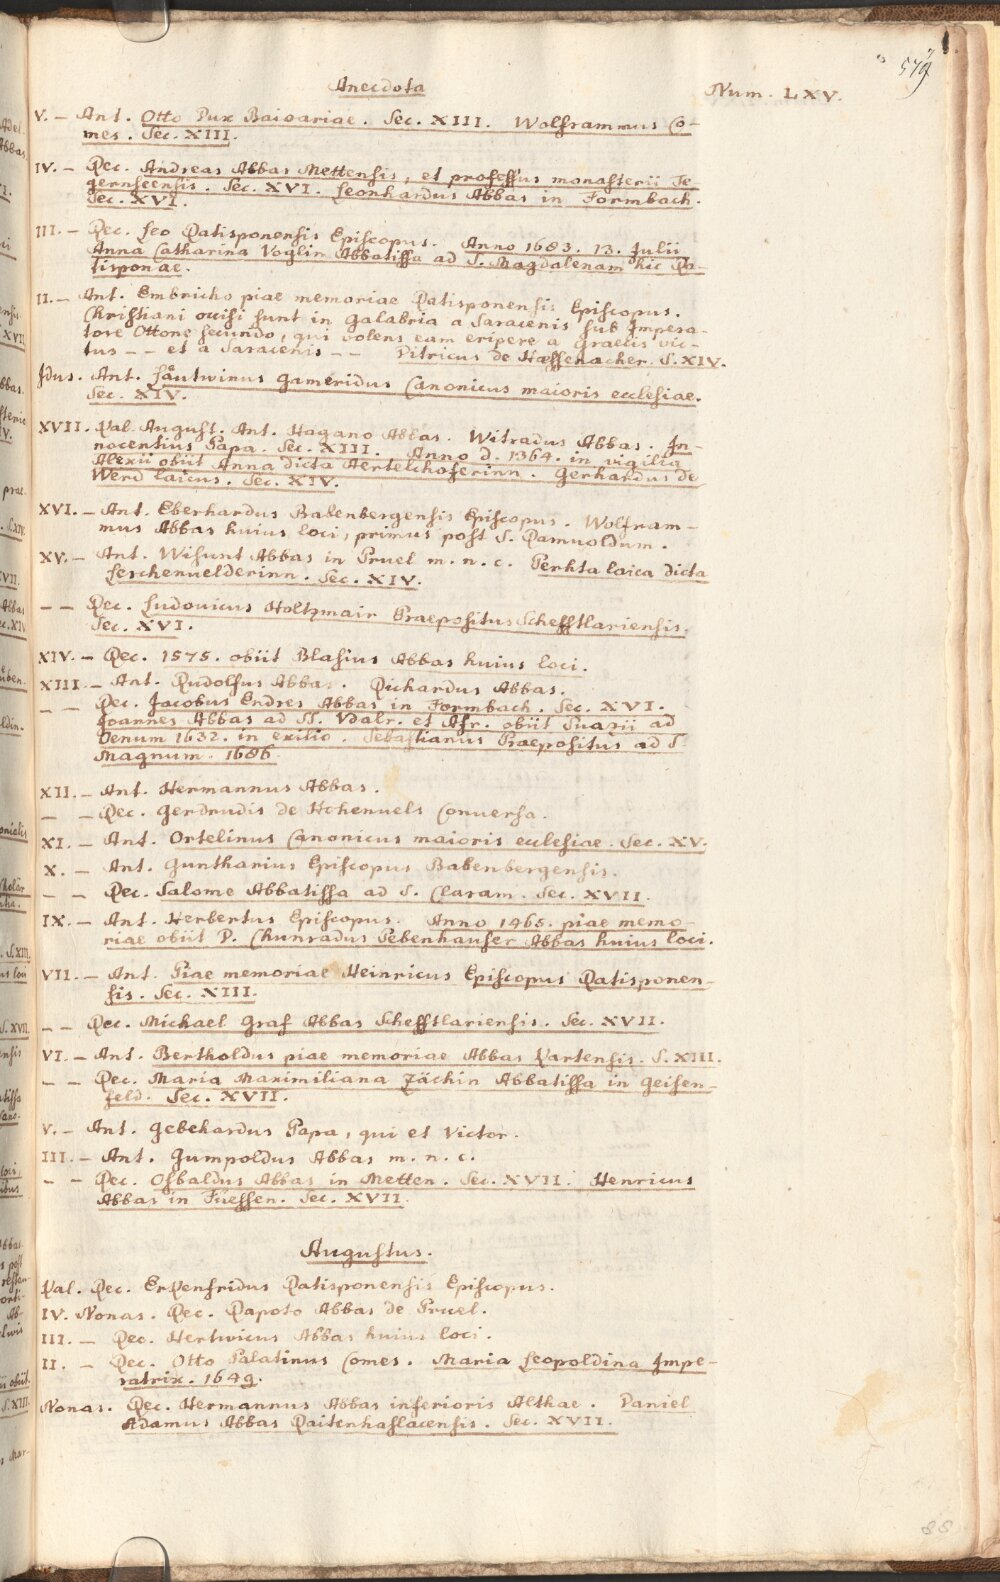 579
Anecdota Num. LXV.
V. – Ant. Otto Dux Baioariae. Sec. XIII. Wolframmus Co-
mes. Sec. XIII.
IV. – Rec. Andreas Abbas Mettensis, et professus monasterii Te
gernseensis. Sec. XVI. Leonhardus Abbas in Formbach.
Sec. XVI.
III. – Rec. Leo Ratisponensis Episcopus. Anno 1683. 13. Julii
Anna Catharina Voglin Abbatissa ad S. Magdalenam hic Ra-
tisponae.
II. – Ant. Embricho piae memoriae Ratisponensis Episcopus.
Christiani occisi sunt in Galabria a Saracenis sub Impera-
tore Ottone secundo, qui volens eam eripere a Graecis vic-
tus – – et a Saracenis – – Ditricus de Hæssenacher. S. XIV.
Idus. Ant. Gautwinus Gameridus Canonicus maioris ecclesiae.
Sec. XIV.
XVII. Kal. August. Ant. Hagano Abbas. Witradus Abbas. In-
nocentius Papa. Sec. XIII. Anno D. 1364. in vigilia
Alexii obiit Anna dicta Aertelchoferinn. Gerhardus de
Werd laicus. Sec. XIV.
XVI. – Ant. Eberhardus Babenbergensis Episcopus. Wolfram-
mus Abbas huius loci, primus post S. Ramuoldum.
XV. – Ant. Wisunt Abbas in Pruel m. n. c. Perhta laica dicta
Lerchenuelderinn. Sec. XIV.
– – Rec. Ludouicus Holtzmair Praepositus Schefftlariensis.
Sec. XVI.
XIV. – Rec. 1575. obiit Blasius Abbas huius loci.
XIII. – Ant. Rudolfus Abbas. Richardus Abbas.
– – Rec. Jacobus Endres Abbas in Formbach. Sec. XVI.
Joannes Abbas ad SS. Vdalr. et Afr. obiit Suazii ad
Oenum 1632. in exilio. Sebastianus Praepositus ad S.
Magnum. 1686.
XII. – Ant. Hermannus Abbas.
– – Rec. Gerdrudis de Hohenuels Conuersa.
XI. – Ant. Ortelinus Canonicus maioris ecclesiae. Sec. XV.
X. – Ant. Guntharius Episcopus Babenbergensis.
– – Rec. Salome Abbatissa ad S. Claram. Sec. XVII.
IX. – Ant. Herbertus Episcopus. Anno 1465. piae memo-
riae obiit D. Chunradus Pebenhauser Abbas huius loci.
VII. – Ant. Piae memoriae Heinricus Episcopus Ratisponen-
sis. Sec. XIII.
– – Rec. Michael Graf Abbas Schefftlariensis. Sec. XVII.
VI. – Ant. Bertholdus piae memoriae Abbas Kartensis. S. XIII.
– – Rec. Maria Maximiliana Jächin Abbatissa in Geisen-
feld. Sec. XVII.
V. – Ant. Gebehardus Papa, qui et Victor.
III. – Ant. Gumpoldus Abbas m. n. c.
– – Rec. Osbaldus Abbas in Metten. Sec. XVII. Henricus
Abbas in Fuessen. Sec. XVII.
Augustus.
Kal. Rec. Erkenfridus Ratisponensis Episcopus.
IV. Nonas. Rec. Rapoto Abbas de Pruel.
III. – Rec. Hertwicus Abbas huius loci.
II. – Rec. Otto Palatinus Comes. Maria Leopoldina Impe-
ratrix. 1649.
Nonas. Rec. Hermannus Abbas inferioris Althae. Daniel
Adamus Abbas Raitenhaslacensis. Sec. XVII.
88